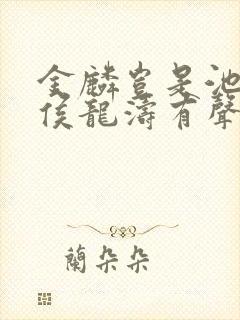 金麟豈是池
侯龍濤有聲
蘭朵朵